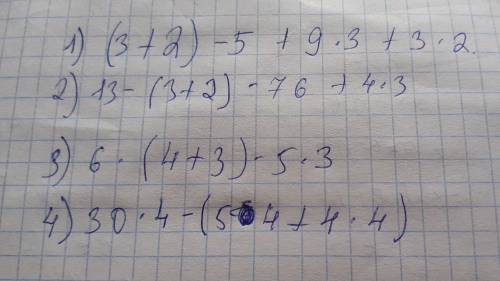 1) (3+2) - 5 + 9·3 + 3·2.
2) 13 - (3+2) - 76 + 4·3
3) 6·(4+3) - 5·3
4) 30·4 - (5 4 + 4·4)